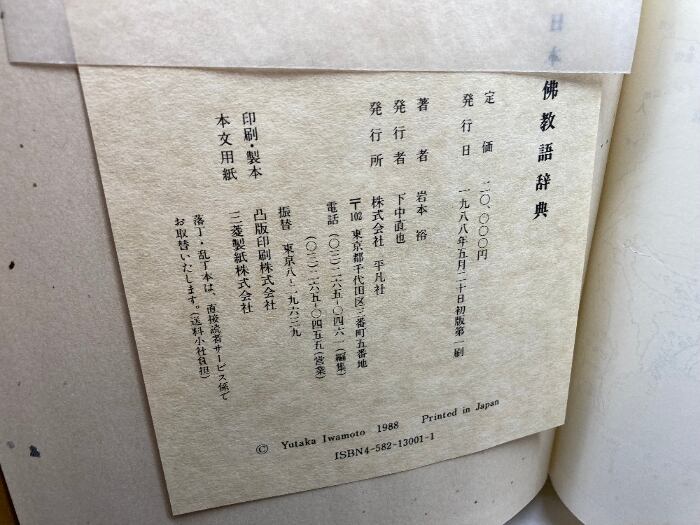 日本佛教語辞典
定価 二〇、〇〇〇円
発行日 一九八八年五月二十日初版第一刷
著者 岩本 裕
発行者 下中直也
発行所 株式会社 平凡社
〒102 東京都千代田区三番町五番地
電話(〇三)二六五―〇四六一(編集)
(〇三)二六五―〇四五五(営業)
振替 東京八―二九六三九
印刷・製本 凸版印刷株式会社
本文用紙 三菱製紙株式会社
落丁・乱丁本は、直接読者サービス係で
お取替いたします。(送料小社負担)
© Yutaka Iwamoto 1988 Printed in Japan
ISBN4-582-13001-1